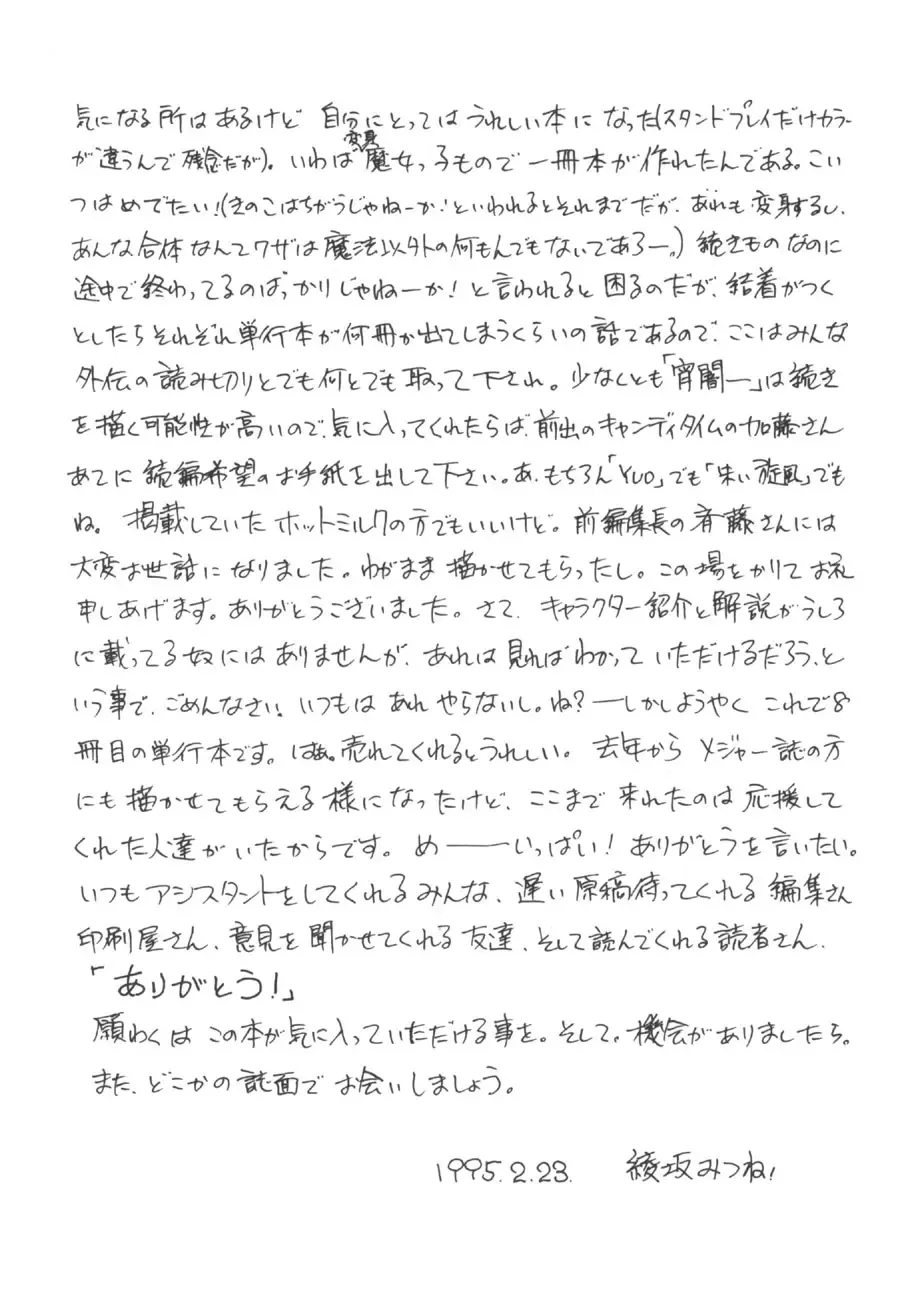 気になる所はあるけど 自分にとってはうれしい本になった(スタンドプレイだけカラー
が違うんで残念だが)。いわば変身魔女っ子もので一冊本が作れたんである。こい
つはめでたい!(きのこはちがうじゃねーか!といわれるとそれまでだが、あれも変身するし、
あんな合体なんてワザは魔法以外の何もんでもないであろー。)続きものなのに
途中で終わってるのばっかりじゃねーか!と言われると困るのだが、結着がつく
としたらそれぞれ単行本が何冊か出てしまうくらいの話であるので、ここはみんな
外伝の読み切りとでも何とでも取って下され。少なくとも「宵闇ー」は続き
を描く可能性が高いので、気に入ってくれたらば、前出のキャンディタイムの加藤さん
あてに続編希望のお手紙を出して下さい。あ、もちろん「YUO」でも「朱い旋風」でも
ね。掲載していたホットミルクの方でもいいけど。前編集長の斉藤さんには
大変お世話になりました。わがまま描かせてもらったし。この場をかりてお礼
申しあげます。ありがとうございました。さて、キャラクター紹介と解説がうしろ
に載ってる奴にはありませんが、あれは見ればわかっていただけるだろう、と
いう事で、ごめんなさい。いつもはあれやらないし。ね?ーしかしようやくこれで8
冊目の単行本です。はぁ。売れてくれるとうれしい。去年からメジャー誌の方
にも描かせてもらえる様になったけど、ここまで来れたのは応援して
くれた人達がいたからです。め――いっぱい!ありがとうを言いたい。
いつもアシスタントをしてくれるみんな、遅い原稿待ってくれる編集さん
印刷屋さん、意見を聞かせてくれる友達、そして読んでくれる読者さん、
「ありがとう!」
願わくはこの本が気に入っていただける事を。そして。機会がありましたら。
また、どこかの誌面でお会いしましょう。
1995.2.23. 綾坂みつね!